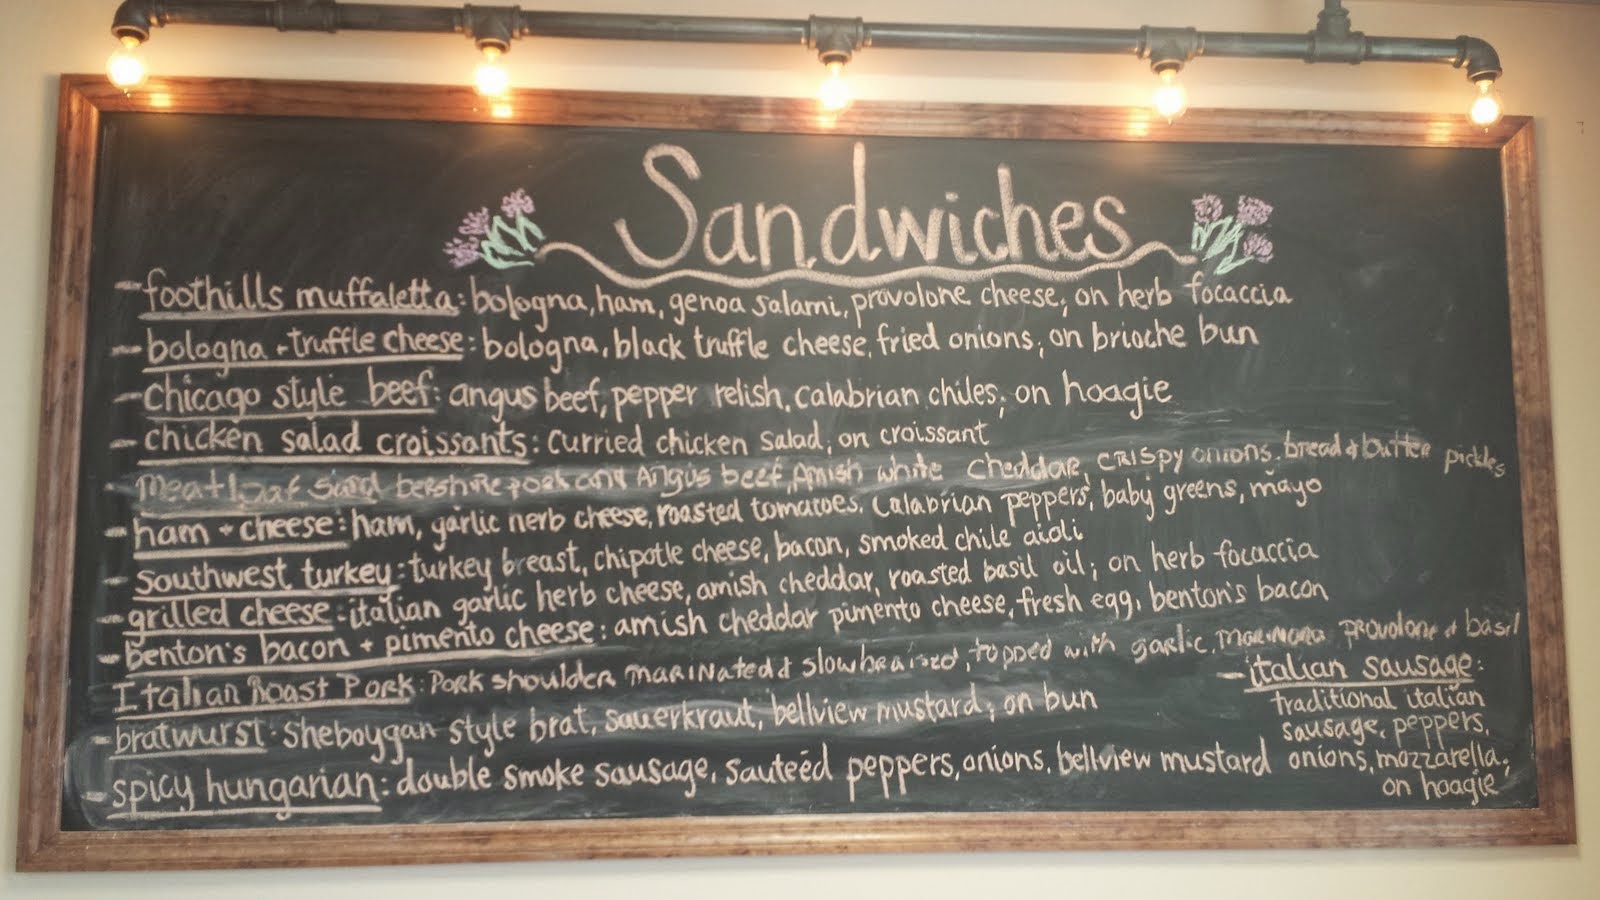 Sandwiches
- foothills muffaletta: bologna, ham, genoa salami, provolone cheese; on herb focaccia
- bologna + truffle cheese: bologna, black truffle cheese, fried onions; on brioche bun
- Chicago style beef: angus beef, pepper relish, calabrian chiles; on hoagie
- chicken salad croissants: curried chicken salad; on croissant
- Meatloaf Sand bershire pork and Angus beef, Amish white cheddar, crispy onions, bread & butter pickles
- ham + cheese: ham, garlic herb cheese, roasted tomatoes, calabrian peppers, baby greens, mayo
- southwest turkey: turkey breast, chipotle cheese, bacon, smoked chile aioli
- grilled cheese: italian garlic herb cheese, amish cheddar, roasted basil oil; on herb focaccia
- benton's bacon + pimento cheese: amish cheddar pimento cheese, fresh egg, benton's bacon
Italian Roast Pork: Pork shoulder marinated & slow braised, topped with garlic, marinara provolone & basil
- bratwurst: sheboygan style brat, sauerkraut, bellview mustard; on bun
- spicy hungarian: double smoke sausage, sauteéd peppers, onions, bellview mustard
- italian sausage:
traditional italian
sausage, peppers,
onions, mozzarella;
on hoagie